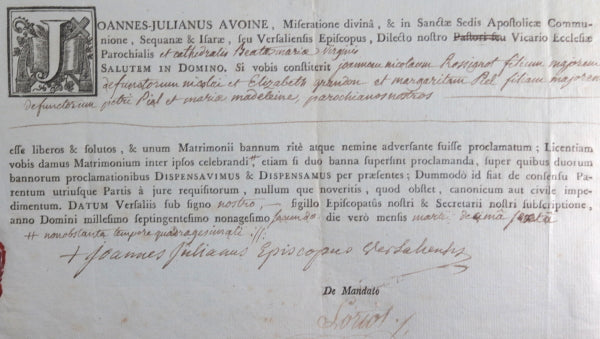 JOANNES-JULIANUS AVOINE, Miseratione divinâ, & in Sanctæ Sedis Apostolicæ Commu-
nione, Sequanæ & Isaræ, seu Versaliensis Episcopus, Dilecto nostro Pastori seu Vicario Ecclesiæ
Parochialis et cathedralis Beatæ mariæ virginis
SALUTEM IN DOMINO. Si vobis constiterit joannem nicolaum Rossignot filium majorem
defunctorum nicolai et Elizabeth grandon et margaritam Piel filiam majorem
defunctorum petri Piel et mariæ madeleine, parochianos nostros
esse liberos & solutos, & unum Matrimonii bannum ritè atque nemine adversante fuisse proclamatum; Licentiam
vobis damus Matrimonium inter ipsos celebrandi #, etiam si duo banna supersint proclamanda, super quibus duorum
bannorum proclamationibus DISPENSAVIMUS & DISPENSAMUS per præsentes; Dummodo id fiat de consensu Pa-
rentum utriusque Partis à jure requisitorum, nullum que noveritis, quod obstet, canonicum aut civile impe-
dimentum. DATUM Versaliis sub signo nostro, sigillo Episcopatûs nostri & Secretarii nostri subscriptione,
anno Domini millesimo septingentesimo nonagesimo secundo die verò mensis martii decimâ sextâ
# nonobstante tempore quadragesimali
+ Joannes Julianus Episcopus Versaliensis
De Mandato
Loriot